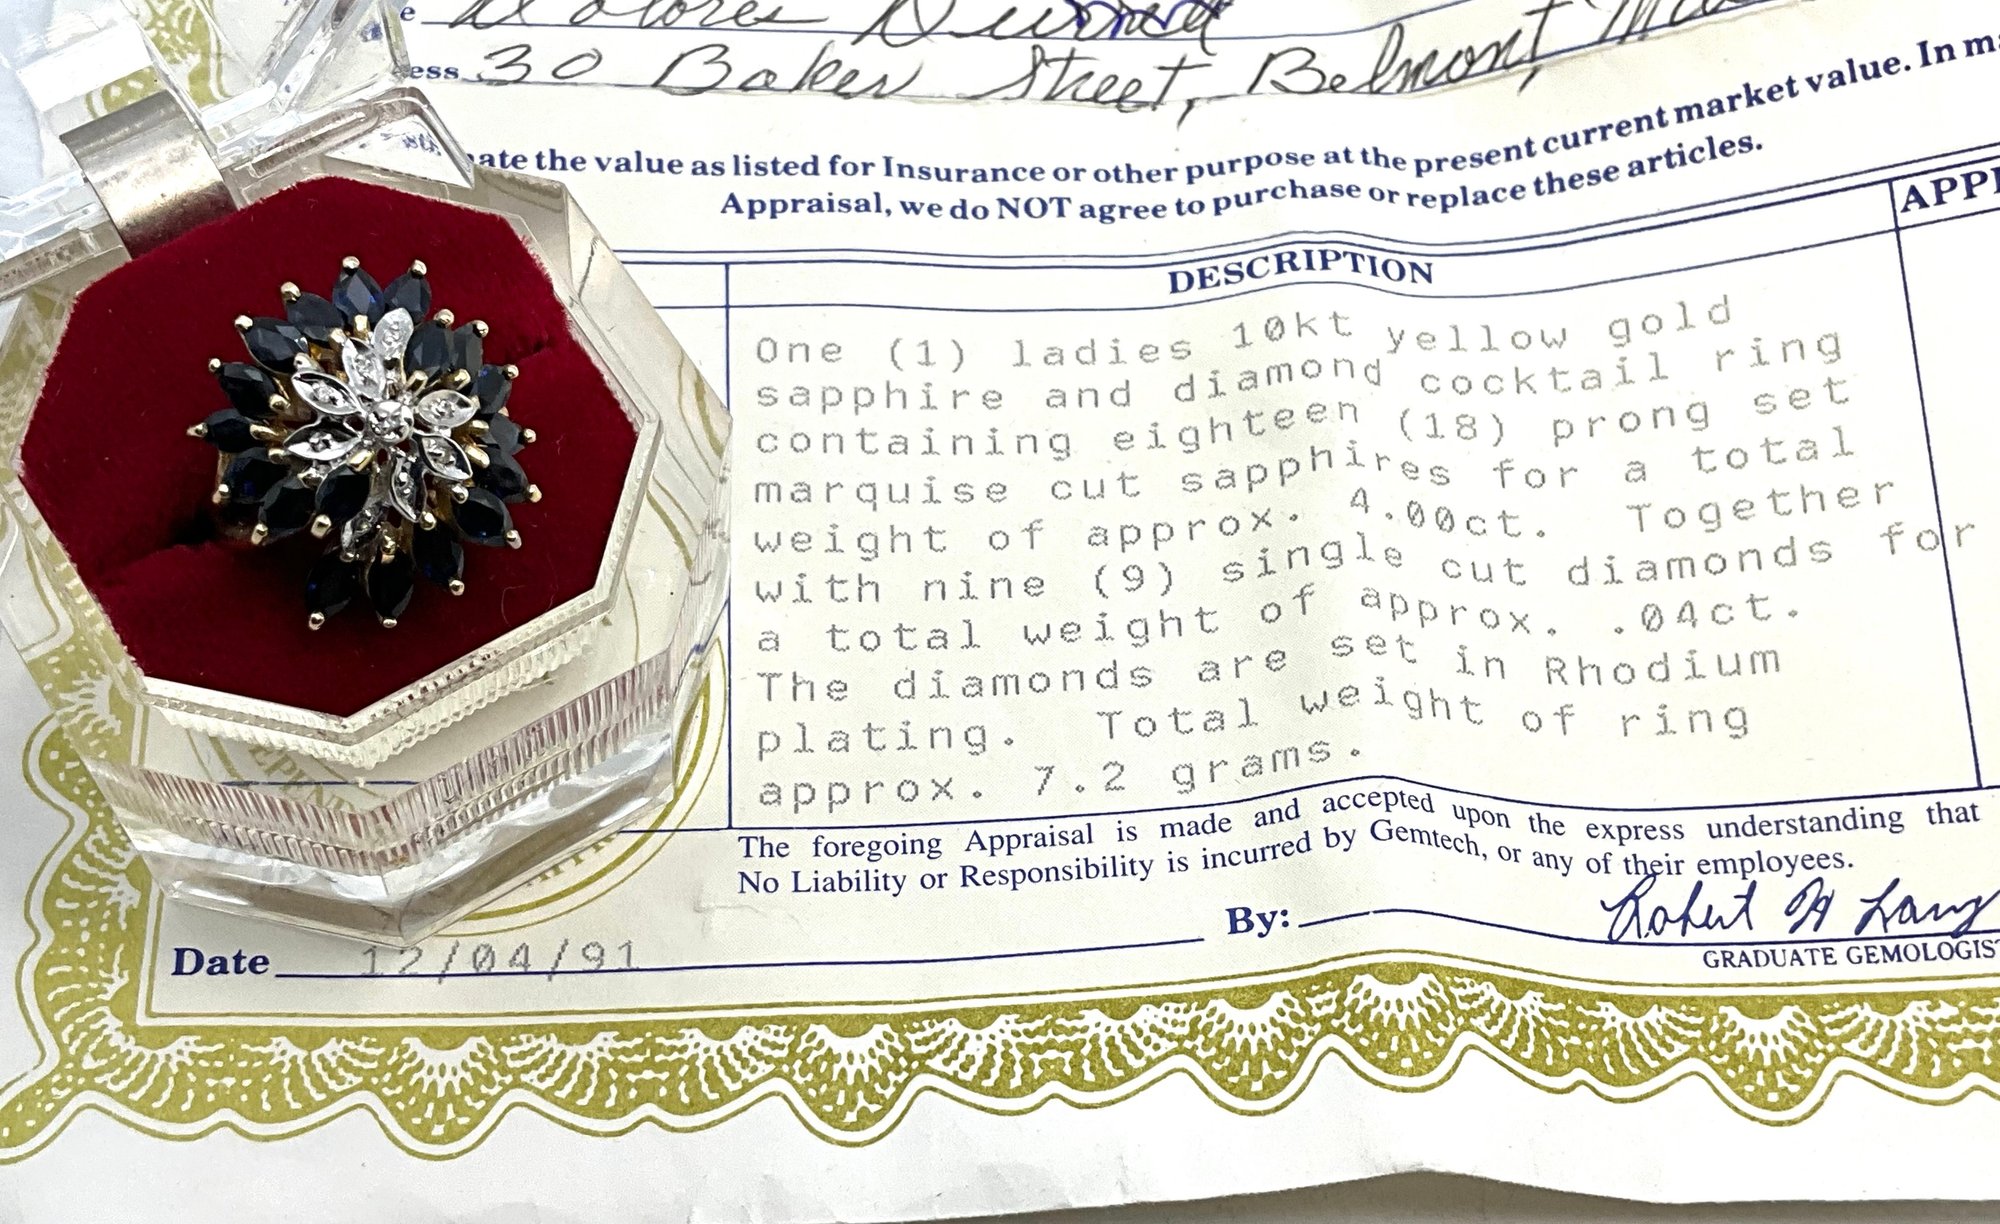 30 Baker Street, Belmont,
the value as listed for Insurance or other purpose at the present current market value. In
Appraisal, we do NOT agree to purchase or replace these articles.
DESCRIPTION
One (1) ladies 10kt yellow gold
sapphire and diamond cocktail ring
containing eighteen (18) prong set
marquise cut sapphires for a total
weight of approx. 4.00ct. Together
with nine (9) single cut diamonds for
a total weight of approx. .04ct.
The diamonds are set in Rhodium
plating. Total weight of ring
approx. 7.2 grams.
The foregoing Appraisal is made and accepted upon the express understanding that
No Liability or Responsibility is incurred by Gemtech, or any of their employees.
By: Robert
GRADUATE GEMOLOGIS
Date 12/04/91